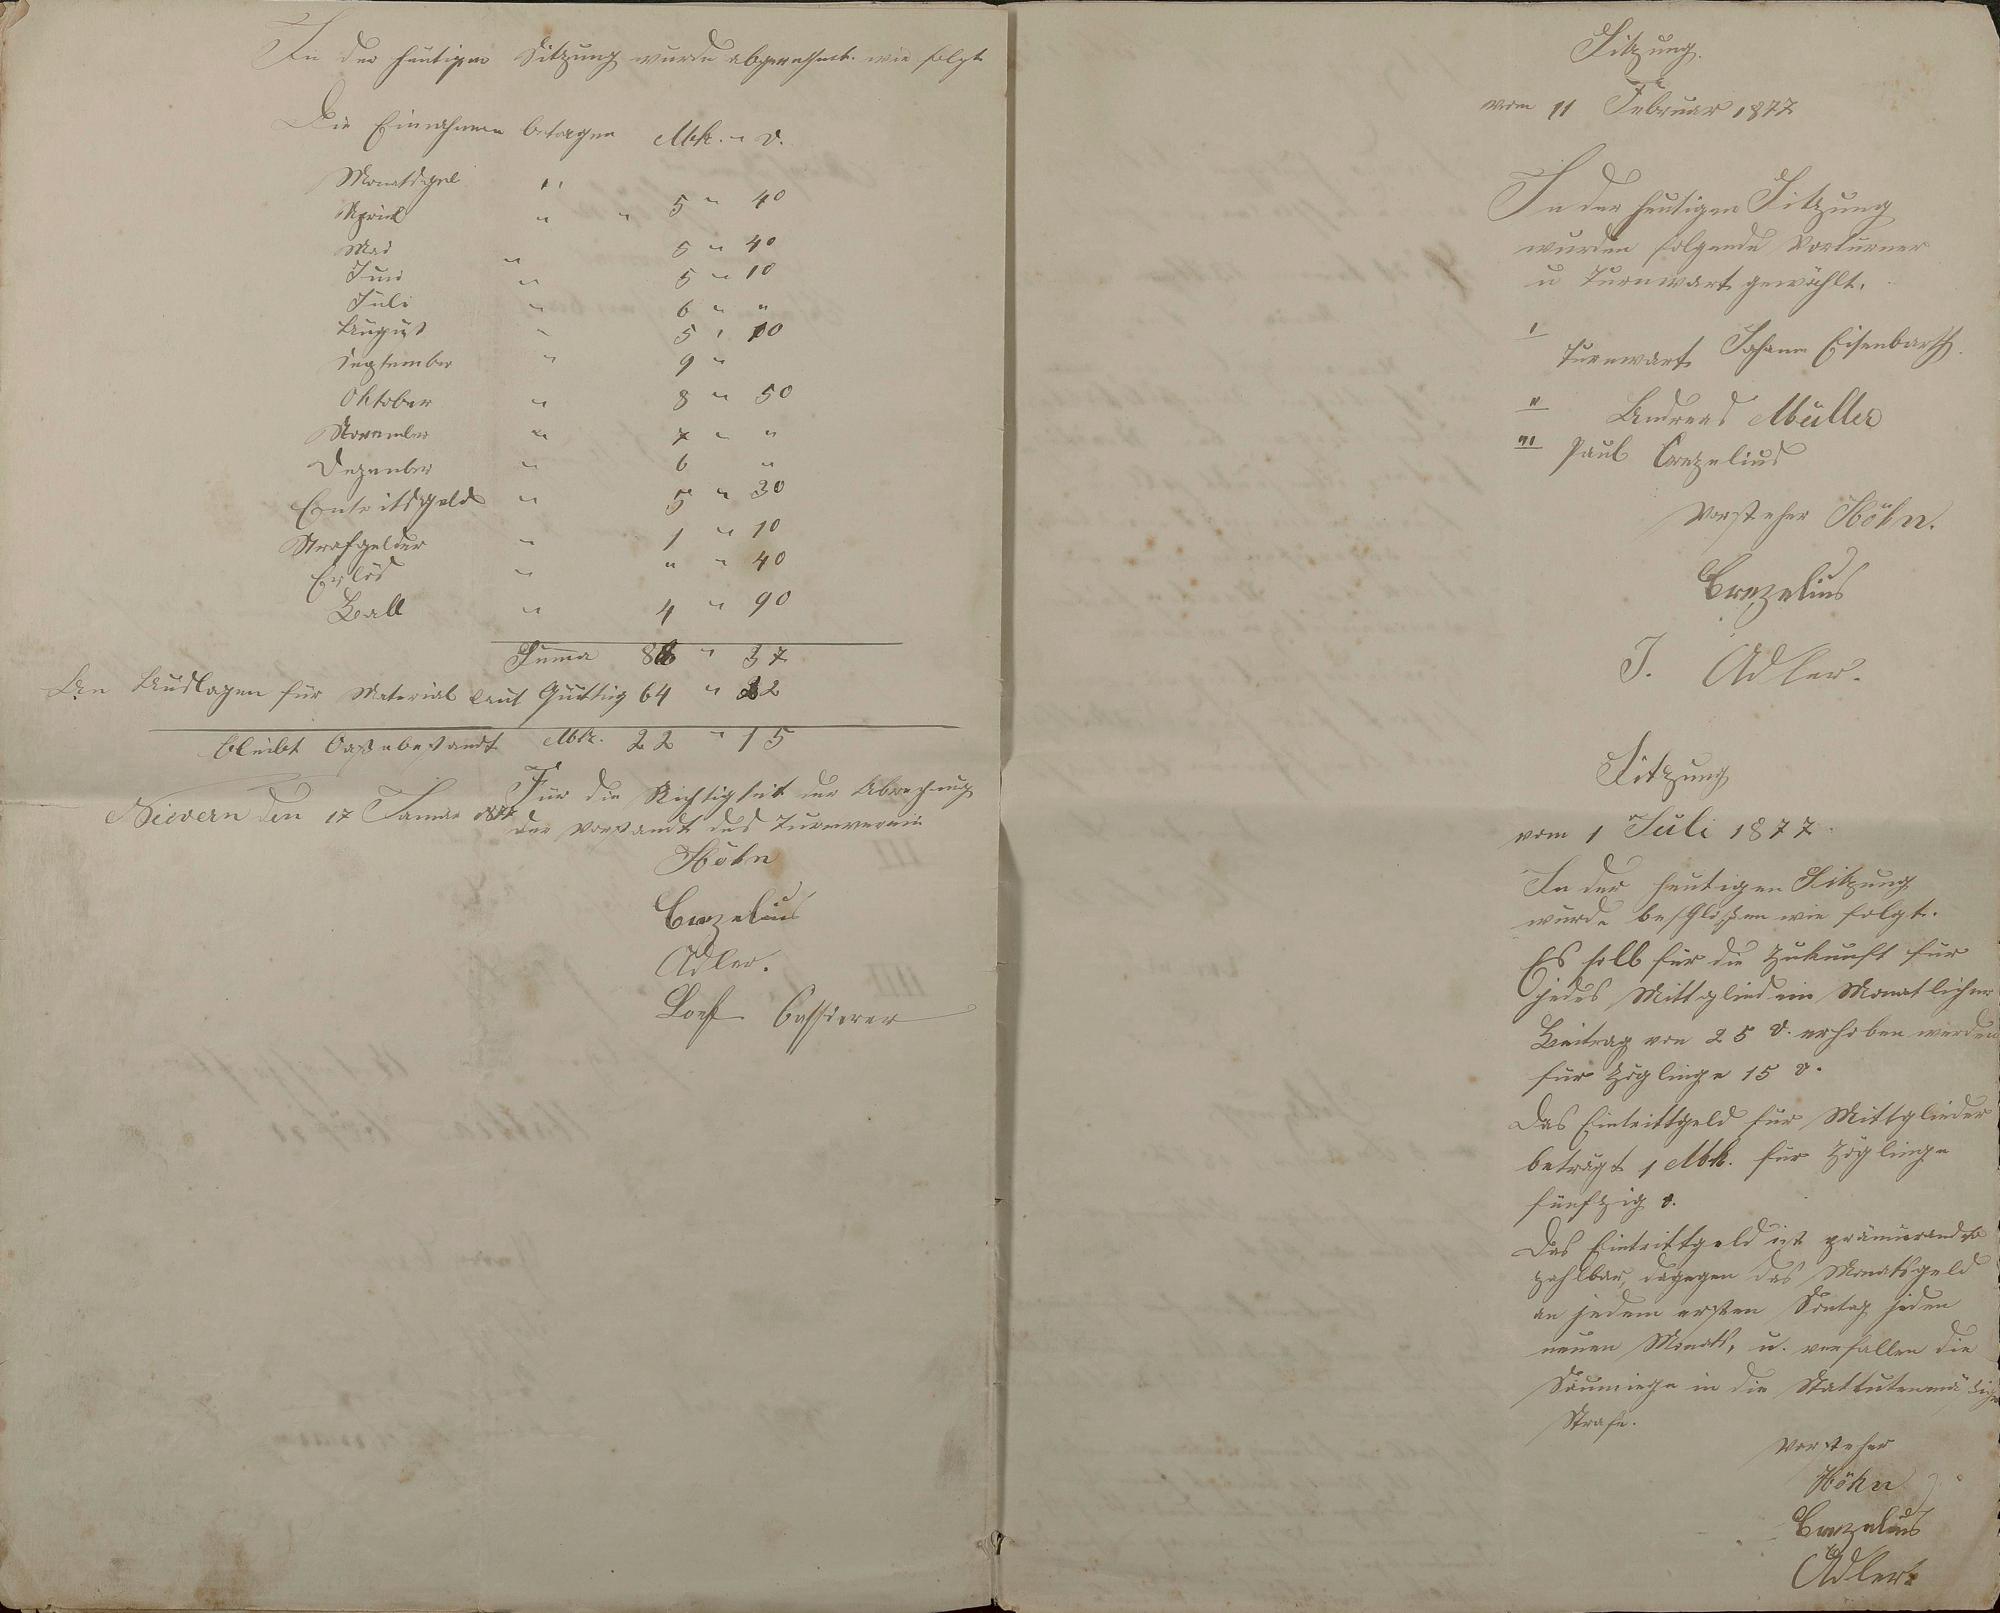 In der heutigen Sitzung wurde abgerechnet wie folgt
Die Einnahmen betragen Mk. " ₰.
Monatsgel "
Aprill " " 5 " 40
Mai " 5 " 40
Juni " 5 " 10
Juli " 6 " "
August " 5 " 10
September " 9 "
Oktober " 8 " 50
November " 7 " "
Dezember " 6 "
Eintritsgeld " 5 " 30
Strafgelder " 1 " 10
Erlös " " " 40
Ball " 4 " 90
Suma 86 " 37
An Auslagen für Material laut Quittug 64 " 22
bleibt Caßebestandt Mk. 22 " 15
Nievern den 17 Januar 1877
Für die Richtigkeit der Abrechnug
der Vorstandt des Turnverein
Höhn
Crezelius
Adler.
Loef Cassierer
Sitzung.
vom 11 Februar 1877
In der heutigen Sitzung
wurden folgende Vorturner
u Turnwart gewählt.
I Turnwart Johann Eisenbarth.
II Andreas Müller
III Paul Crezelius
Vorsteher Höhn.
Crezelius
J. Adler.
Sitzung
vom 1 Juli 1877.
In der heutigen Sitzung
wurde beschloßen wie folgt.
Es soll für die Zukunft für
jedes Mittglied ein Monatlicher
Beitrag von 25 ₰. erhoben werden
für Zöglinge 15 ₰.
Das Eintrittgeld für Mittglieder
beträgt 1 Mk. für Zöglinge
fünfzig ₰.
Das Eintrittgeld ist pränumerando
zahlbar, dagegen das Monatsgeld
an jedem ersten Sontag jeden
neuen Monats, u. verfallen die
Säumige in die Stattutenmäßige
Strafe.
Vorsteher
Höhn
Crezelius
Adler